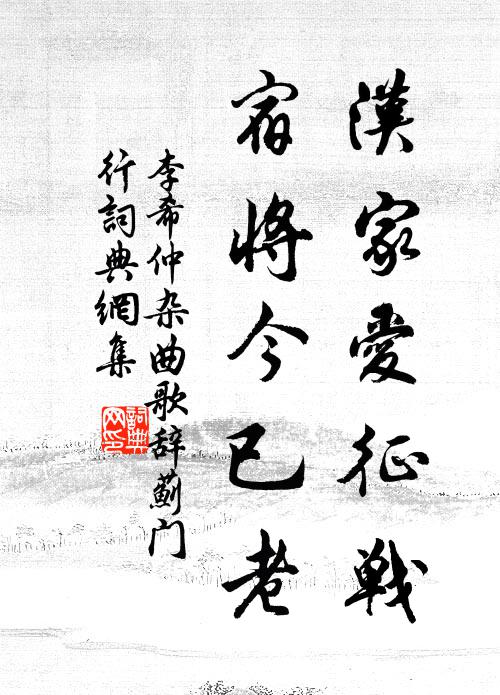 漢家愛征戰
宿將今已老
李希仲杂曲歌辞薊门
行詞典網集
詞典
网印